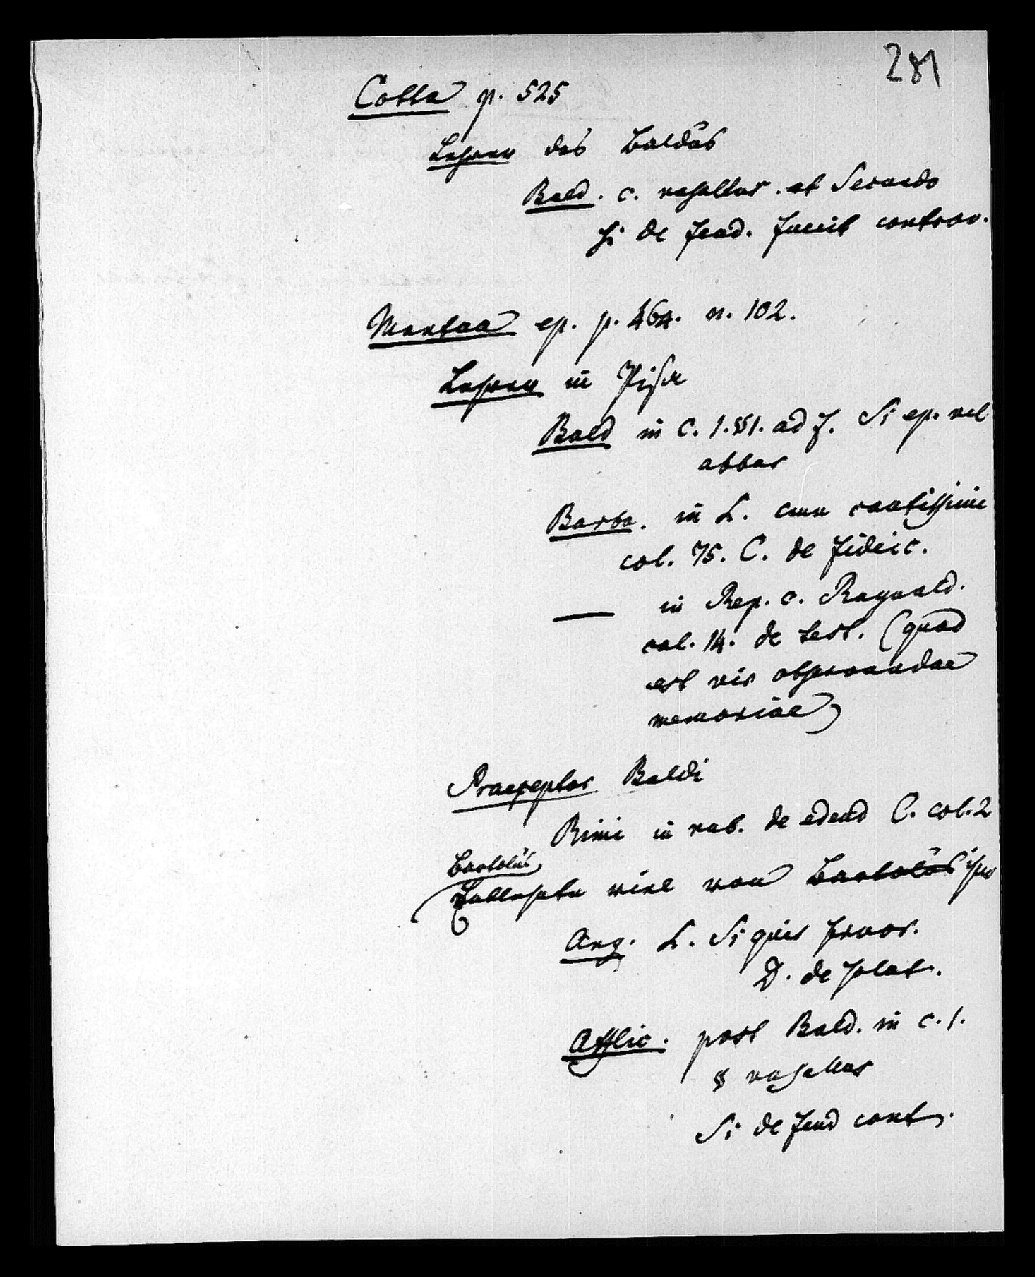 281
Cotta p. 525
Lehrer des Baldus
Bald. c. vasallus. et Secundo
si de feud. fuerit controv.
Mantua ep. p. 464. n. 102.
Lehrer in Pisa
Bald in c. 1. §1. ad f. Si ep. vel
abbas
Barba. in L. cum
col. 75. C. de fideic.
— in Rep. c. Raynald.
col. 14. de test. (quod
est vir observandae
memoriae)
Praeceptor Baldi
in rub. de edend C. col. 2
Bartolus
viel von Bartolus
Ang. L. Si quis
D. de
Afflic. post Bald. in c. 1.
§ vasallus
Si de feud cont.